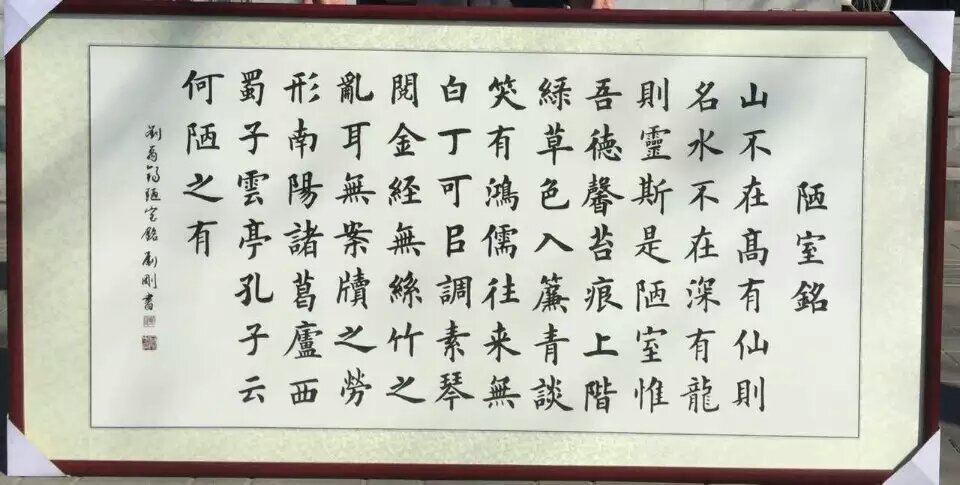 陋室銘
山不在髙有仙則
名水不在深有龍
則靈斯是陋室惟
吾德馨苔痕上階
綠草色入簾青談
笑有鴻儒往来無
白丁可㠯調素琴
閱金経無絲竹之
亂耳無案牘之勞
形南陽諸葛廬西
蜀子雲亭孔子云
何陋之有
劉禹錫陋室銘 劉剛書